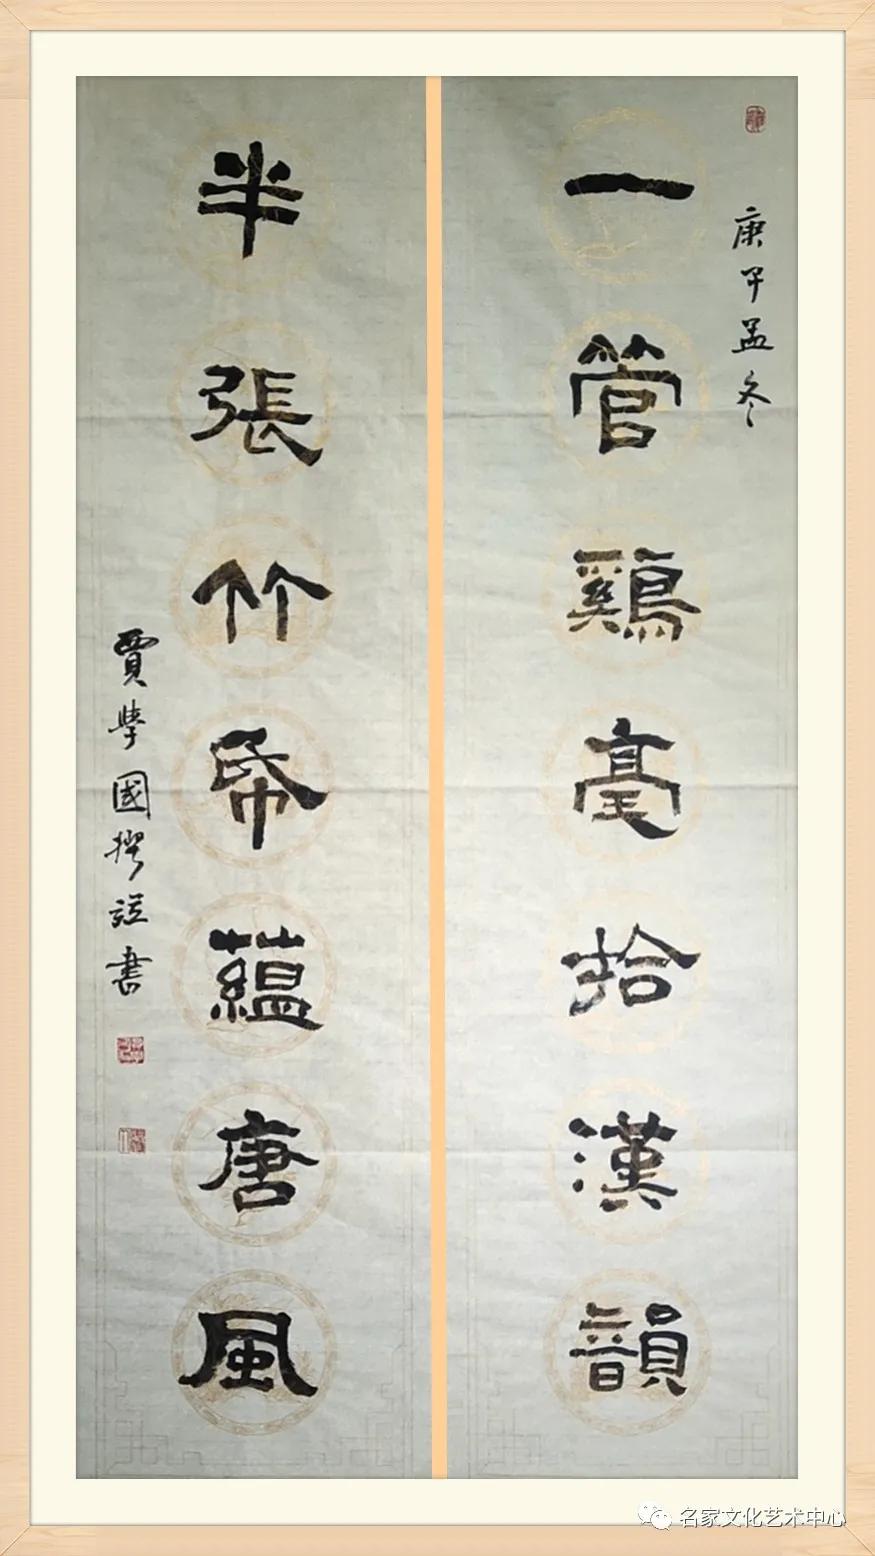 庚子孟冬
一管鷄毫拾漢韻
半張竹帋蘊唐風
賈學國撰並書
名家文化艺术中心